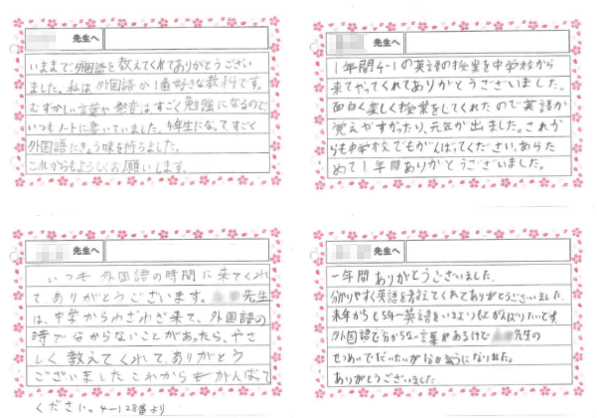 先生へ
いままで、外国語を教えてくれてありがとうござい
ました。私は外国語が1番好きな教科です。
むずかしい言葉や発音はすごく勉強になるので
いつもノートに書いていました。4年生になってすごく
外国語にきょう味を持ちました。
これからもよろしくお願いします。
先生へ
1年間4-1の英語の授業を中学校から
来てやってくれてありがとうございました。
面白く楽しく授業をしてくれたので英語が
覚えやすかったり、元気が出ました。これか
らも中学校でもがんばってください。あらた
めて1年間ありがとうございました。
先生へ
いつも外国語の時間に来てくれ
て、ありがとうございます。先生
は、中学からわざわざ来て、外国語の
時で分からないことがあったら、やさ
しく教えてくれて、ありがとう
ございましたこれからもがんばって
ください。4-1 28番より
先生へ
一年間ありがとうございました。
分かりやすく英語を教えてくれてありがとうございました。
来年からも5年一英語をいまよりもとがんばりたいです。
外国語で分からない言葉があるけど先生の
せつめいでだいたいが分かるようになりました。
ありがとうございました